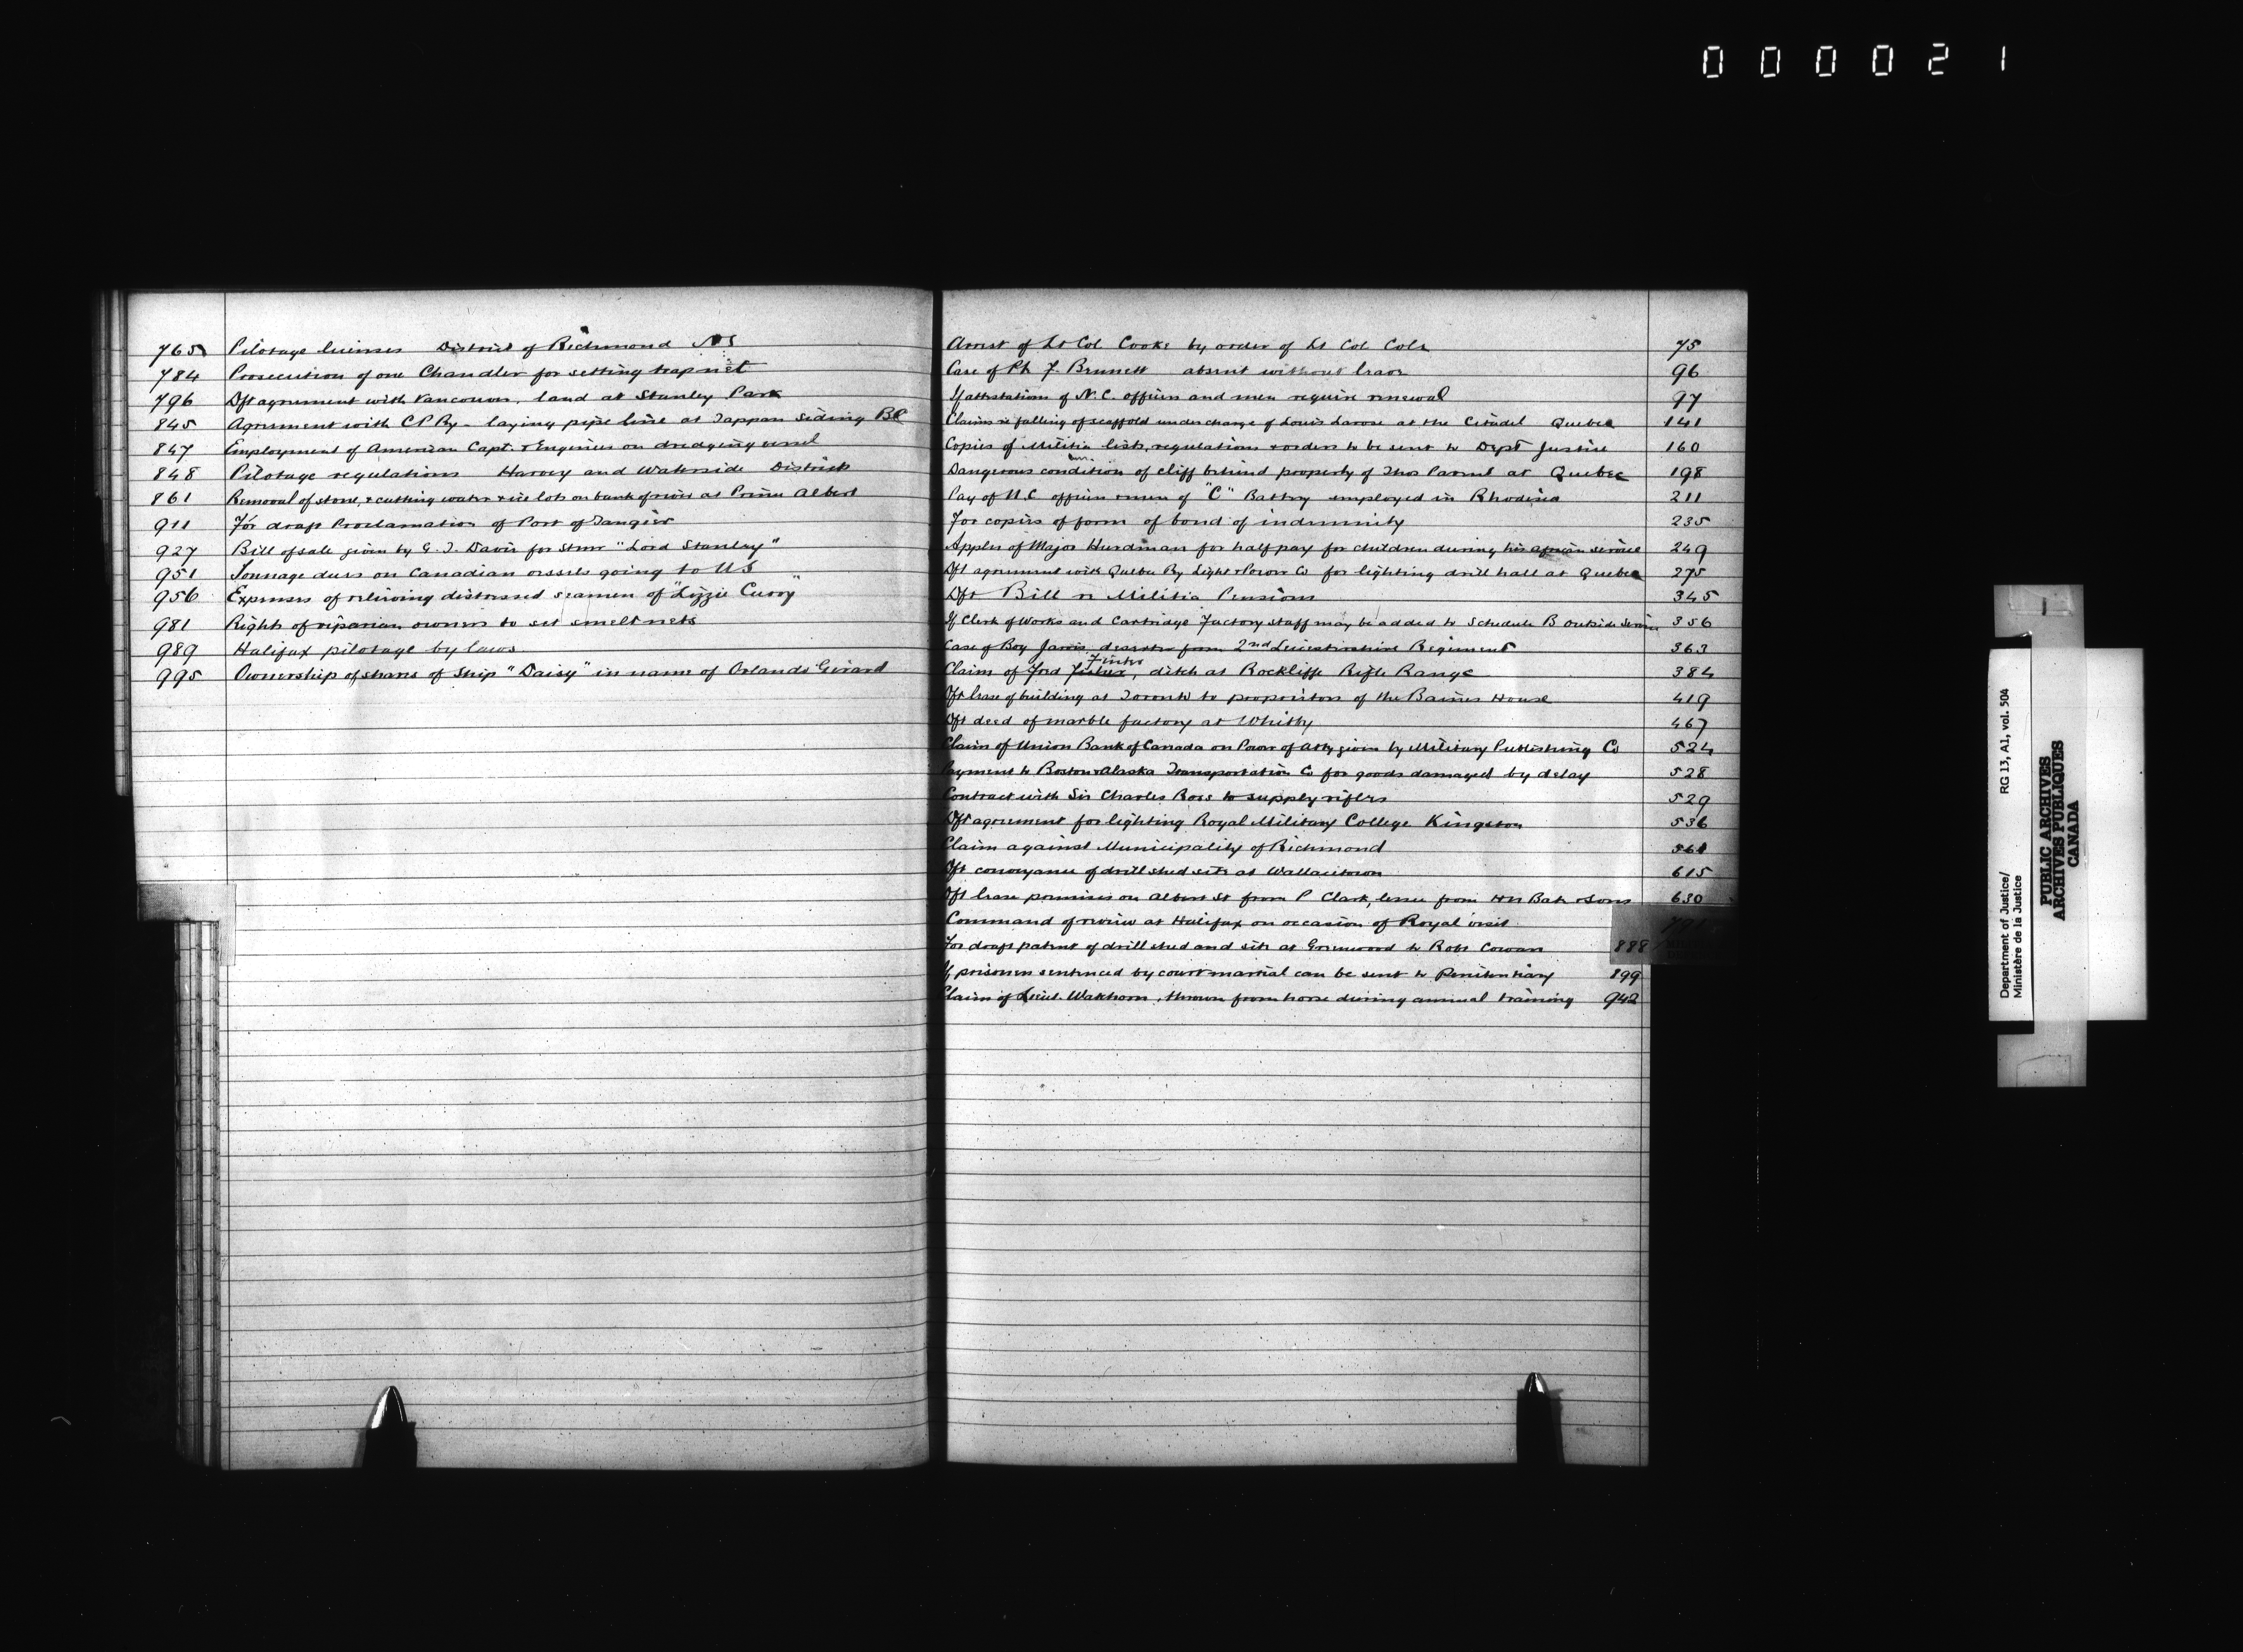 000021
765 Pilotage licenses District of Richmond NS
784 Prosecution of one Chandler for setting trapnet
796 Dft agreement with Vancouver, land at Stanley Park
845 Agreement with CPRy - laying pipe line at Tappan Siding BC
847 Employment of American Capt. & Engineer on dredging vessel
848 Pilotage regulations Harvey and Waterside Districts
861 Removal of stone, & cutting water & ice lots on bank of river at Prince Albert
911 For draft Proclamation of Port of Tangier
927 Bill of sale given by G. J. Davis for Stmr "Lord Stanley"
951 Tonnage dues on Canadian vessels going to US
956 Expenses of relieving distressed seamen of "Lizzie Curry"
981 Rights of riparian owners to set smelt nets
989 Halifax pilotage by laws
995 Ownership of shares of Ship "Daisy" in name of Orlando Girard
Arrest of Lt Col Cooke by order of Lt Col Cole 75
Case of Pte J. Brunett absent without leave 96
If attestations of N.C. officers and men require renewal 97
Claims re falling of scaffold under charge of Louis Larose at the Citadel Quebec 141
Copies of Militia lists, regulations & orders to be sent to Dept Justice 160
Dangerous condition of cliff behind property of Thos Parent at Quebec 198
Pay of N.C. officers & men of "C" Battery employed in Rhodesia 211
For copies of form of bond of indemnity 235
Appln of Major Hurdman for half pay for children during his african service 249
Dft agreement with Quebec Ry Light & Power Co for lighting drill hall at Quebec 275
Dft Bill re Militia Pensions 345
If Clerk of Works and Cartridge Factory staff may be added to Schedule B outside service 356
Case of Boy Jarvis deserter from 2nd Leicestershire Regiment 363
Claim of Fred Finter, ditch at Rockliffe Rifle Range 384
Dft lease of building at Toronto to proprietors of the Baines House 419
Dft deed of marble factory at Whitby 467
Claim of Union Bank of Canada on Power of atty given by Military Publishing Co 524
Payment to Boston & Alaska Transportation Co for goods damaged by delay 528
Contract with Sir Charles Ross to supply rifles 529
Dft agreement for lighting Royal Military College Kingston 536
Claim against Municipality of Richmond 561
Dft conveyance of drill shed site at Wallacetown 615
Dft lease premises on Albert St from P Clark, lessee from HN Bate & Sons 630
Command of review at Halifax on occasion of Royal visit
For draft patent of drill shed and site at Greenwood to Robt Cowan 888
If prisoners sentenced by court martial can be sent to Penitentiary 899
Claim of Lieut. Wakhorn, thrown from horse during annual training 942
Department of Justice/
Ministère de la Justice
RG 13, A1, vol. 504
PUBLIC ARCHIVES
ARCHIVES PUBLIQUES
CANADA